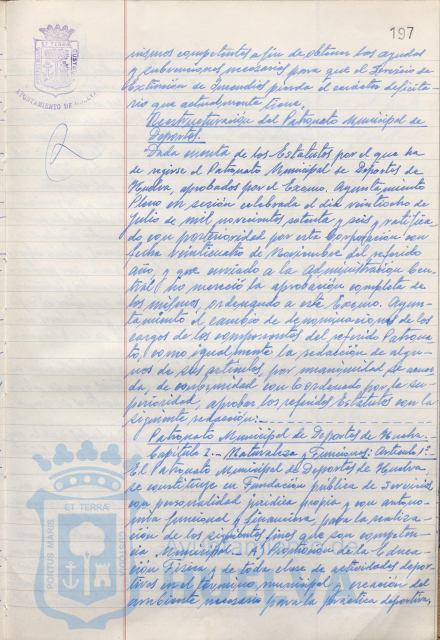 197
ET TERRÆ
AYUNTAMIENTO DE HUELVA
nismos competentes a fin de obtener las ayudas
y subvenciones necesarias para que el Servicio de
Extinción de Incendios pierda el carácter deficita-
rio que actualmente tiene.
Reestructuración del Patronato Municipal de
Deportes.
Dada cuenta de los Estatutos por el que ha
de regirse el Patronato Municipal de Deportes de
Huelva, aprobados por el Excmo. Ayuntamiento
Pleno en sesión celebrada el día veintiocho de
Julio de mil novecientos setenta y seis y ratifica-
do con posterioridad por esta Corporación con
fecha veinticuatro de Noviembre del referido
año, y que enviado a la Administración Cen-
tral no mereció la aprobación completa de
los mismos, ordenando a este Excmo. Ayun-
tamiento el cambio de denominaciones de los
cargos de los componentes del referido Patrona-
to, como igualmente la redacción de algu-
nos de sus artículos, por unanimidad se acuer-
da, de conformidad con lo ordenado por la Su-
perioridad, aprobar los referidos Estatutos con la
siguiente redacción:
Patronato Municipal de Deportes de Huelva.
Capítulo I.- Naturaleza y Funciones: Artículo 1º
El Patronato Municipal de Deportes de Huelva
se constituye en Fundación pública de Servicio,
con personalidad jurídica propia y con autono-
mía funcional y financiera, para la realiza-
ción de los siguientes fines que son competen-
cia Municipal: A) Promoción de la Educa-
ción Física y de toda clase de actividades depor-
tivas en el término municipal y creación del
ambiente necesario para la práctica deportiva,
PORTUS MARIS ET TERRÆ CUSTODIA
HUELVA